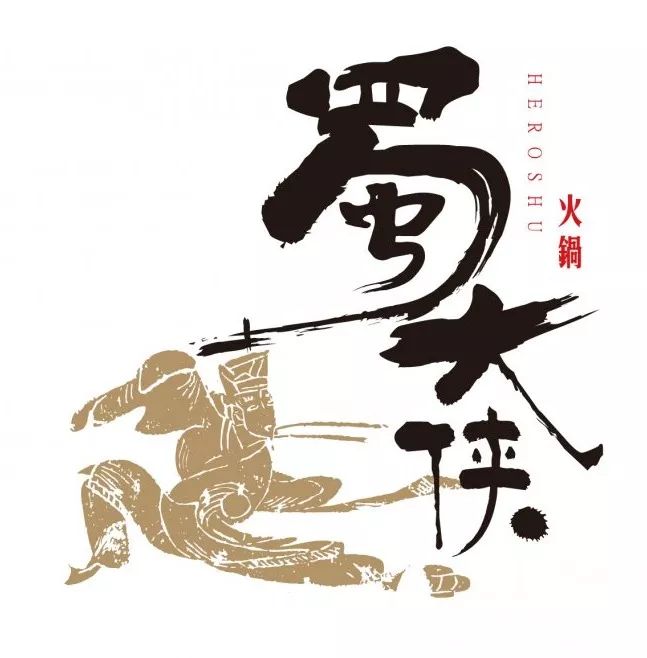 蜀大侠
HEROSHU
火鍋